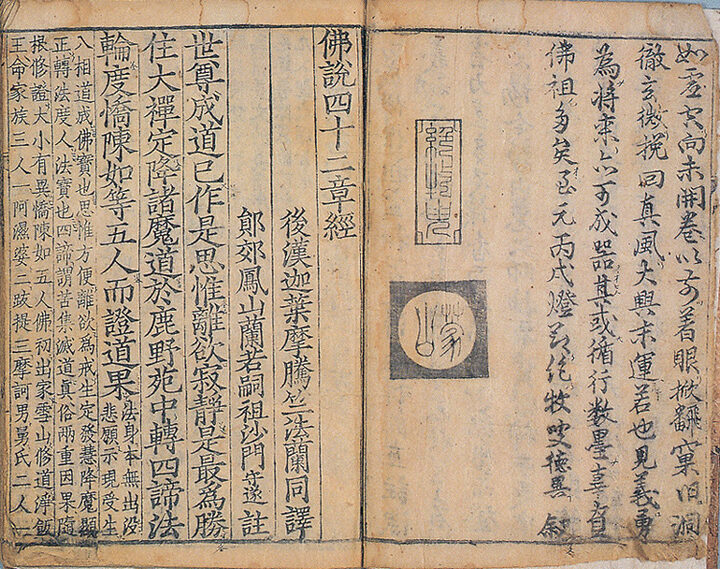 如虛空而未開卷以前着眼掀飜窠旧洞
徹玄微挽回真風大興末運若也見義勇
為將來亦可成器其或循行数墨辜負
佛祖多矣至元丙戌燈節絶牧叟德異敘
絶牧叟
蒙山
佛說四十二章經
後漢迦葉摩騰竺法蘭同譯
鄖郊鳳山蘭若嗣祖沙門守遂註
世尊成道已作是思惟離欲寂靜是最為勝
住大禪定降諸魔道於鹿野苑中轉四諦法
輪度憍陳如等五人而證道果
法身本無出没
悲願示現受生
八相道成佛寶也思惟方便離欲為戒生定發慧降魔顯
正轉法度人法寶也四諦謂苦集滅道真俗兩重因果隨
根修證大小有異憍陳如五人佛初出家雪山修道淨飯
王命家族三人一阿濕婆二跋提三摩訶男舅氏二人一